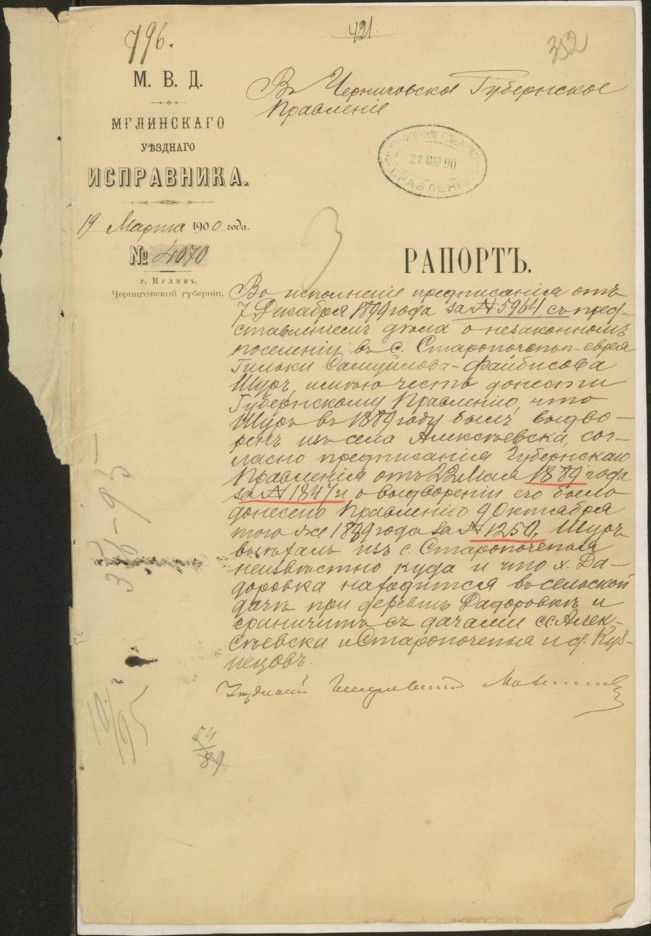 796.
421
352
М. В. Д.
МГЛИНСКАГО
УѢЗДНАГО
ИСПРАВНИКА.
19 Марта 1900 года.
№ 4070
г. Мглинъ,
Черниговской губерніи.
Въ Черниговское Губернское
Правленіе
27 МАР 90
3
РАПОРТЪ.
Во исполненіе предписанія отъ
7 Декабря 1899 года за № 5964 съ пред-
ставленіемъ дѣла о незаконномъ
поселеніи въ с. Старопочепьѣ еврея
Самуйлова-Файбисова
Шуръ, имѣю честь донести
Губернскому Правленію, что
Шуръ въ 1889 году былъ выдво-
ренъ изъ села Алексѣевска, сог-
ласно предписанія Губернскаго
Правленія отъ 22 Мая 1889 года
за № 1847 и о выдвореніи его было
донесено Правленію 9 Октября
того же 1889 года за № 1250, Шуръ
выѣхалъ изъ с. Старопочепья
неизвѣстно куда и что х. Да-
доровка находится въ сельской
дачѣ при деревнѣ Дадоровкѣ и
граничитъ съ дачами с.с. Алек-
сѣевска и Старопочепья и д. Куз-
нецовъ.
Уѣздный Исправникъ
38-93
10/95
54/89